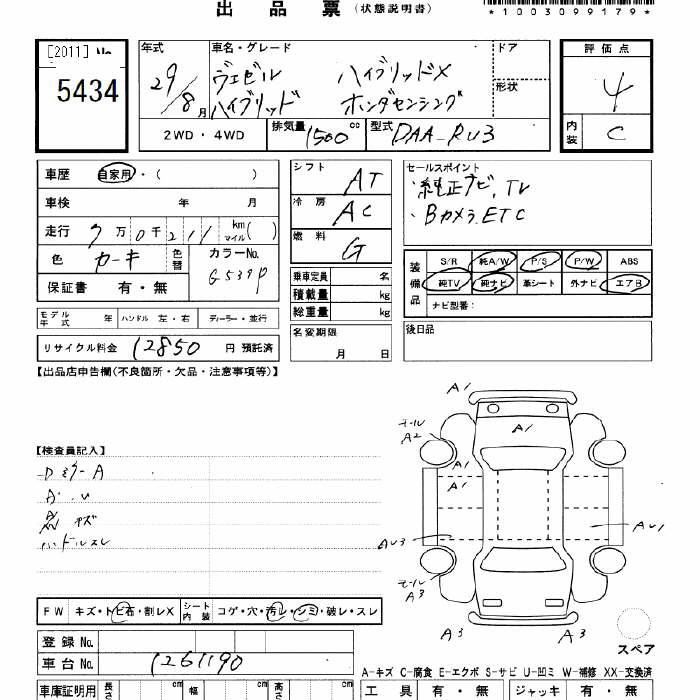 出品票 (状態説明書)
*1003099179*
[2011] No
5434
年式 車名・グレード ドア 評価点
29/8月 ヴェゼルハイブリッド ハイブリッドX ホンダセンシング 形状 4
2WD・4WD 排気量 1500 cc 型式 DAA-RU3 内装 C
車歴 自家用・( )
車検 年 月
走行 7万0千211 km マイル( )
色 カーキ 色替 カラーNo. G539P
保証書 有・無
シフト AT
冷房 AC
燃料 G
乗車定員 名
積載量 kg
総重量 kg
セールスポイント
・純正ナビ、TV
・Bカメラ、ETC
装備品 S/R 純A/W P/S P/W ABS
純TV 純ナビ 革シート 外ナビ エアB
ナビ型番:
モデル年式 年 ハンドル 左・右 ディーラー・並行
名変期限 月 日
後日品
リサイクル料金 12850 円 預託済
【出品店申告欄(不良箇所・欠品・注意事項等)】
【検査員記入】
ハンドルスレ
A1
A1
モール A2
A1
A1
AU3
AU1
モール A3
A3
A3
スペア
FW キズ・トビ石・割レX シート内装 コゲ・穴・汚レ・シミ・破レ・スレ
登録No.
車台No. 1261190
A-キズ C-腐食 E-エクボ S-サビ U-凹ミ W-補修 XX-交換済
車庫証明用 長さ cm 幅 cm 高さ cm 工具 有・無 ジャッキ 有・無